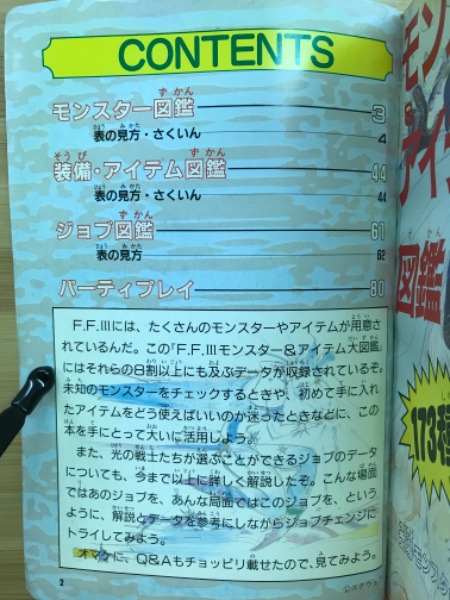 CONTENTS
モンスター図鑑 3
表の見方・さくいん 4
装備・アイテム図鑑 44
表の見方・さくいん 44
ジョブ図鑑 61
表の見方 62
パーティプレイ 80
F.F.Ⅲには、たくさんのモンスターやアイテムが用意さ
れているんだ。この『F.F.Ⅲモンスター&アイテム大図鑑』
にはそれらの8割以上にも及ぶデータが収録されているぞ。
未知のモンスターをチェックするときや、初めて手に入れ
たアイテムをどう使えばいいのか迷ったときなどに、この
本を手にとって大いに活用しよう。
また、光の戦士たちが選ぶことができるジョブのデータ
についても、今まで以上に詳しく解説したぞ。こんな場面
ではあのジョブを、あんな局面ではこのジョブを、という
ように、解説とデータを参考にしながらジョブチェンジに
トライしてみよう。
オマケに、Q&Aもチョッピリ載せたので、見てみよう。
2
図鑑
173種